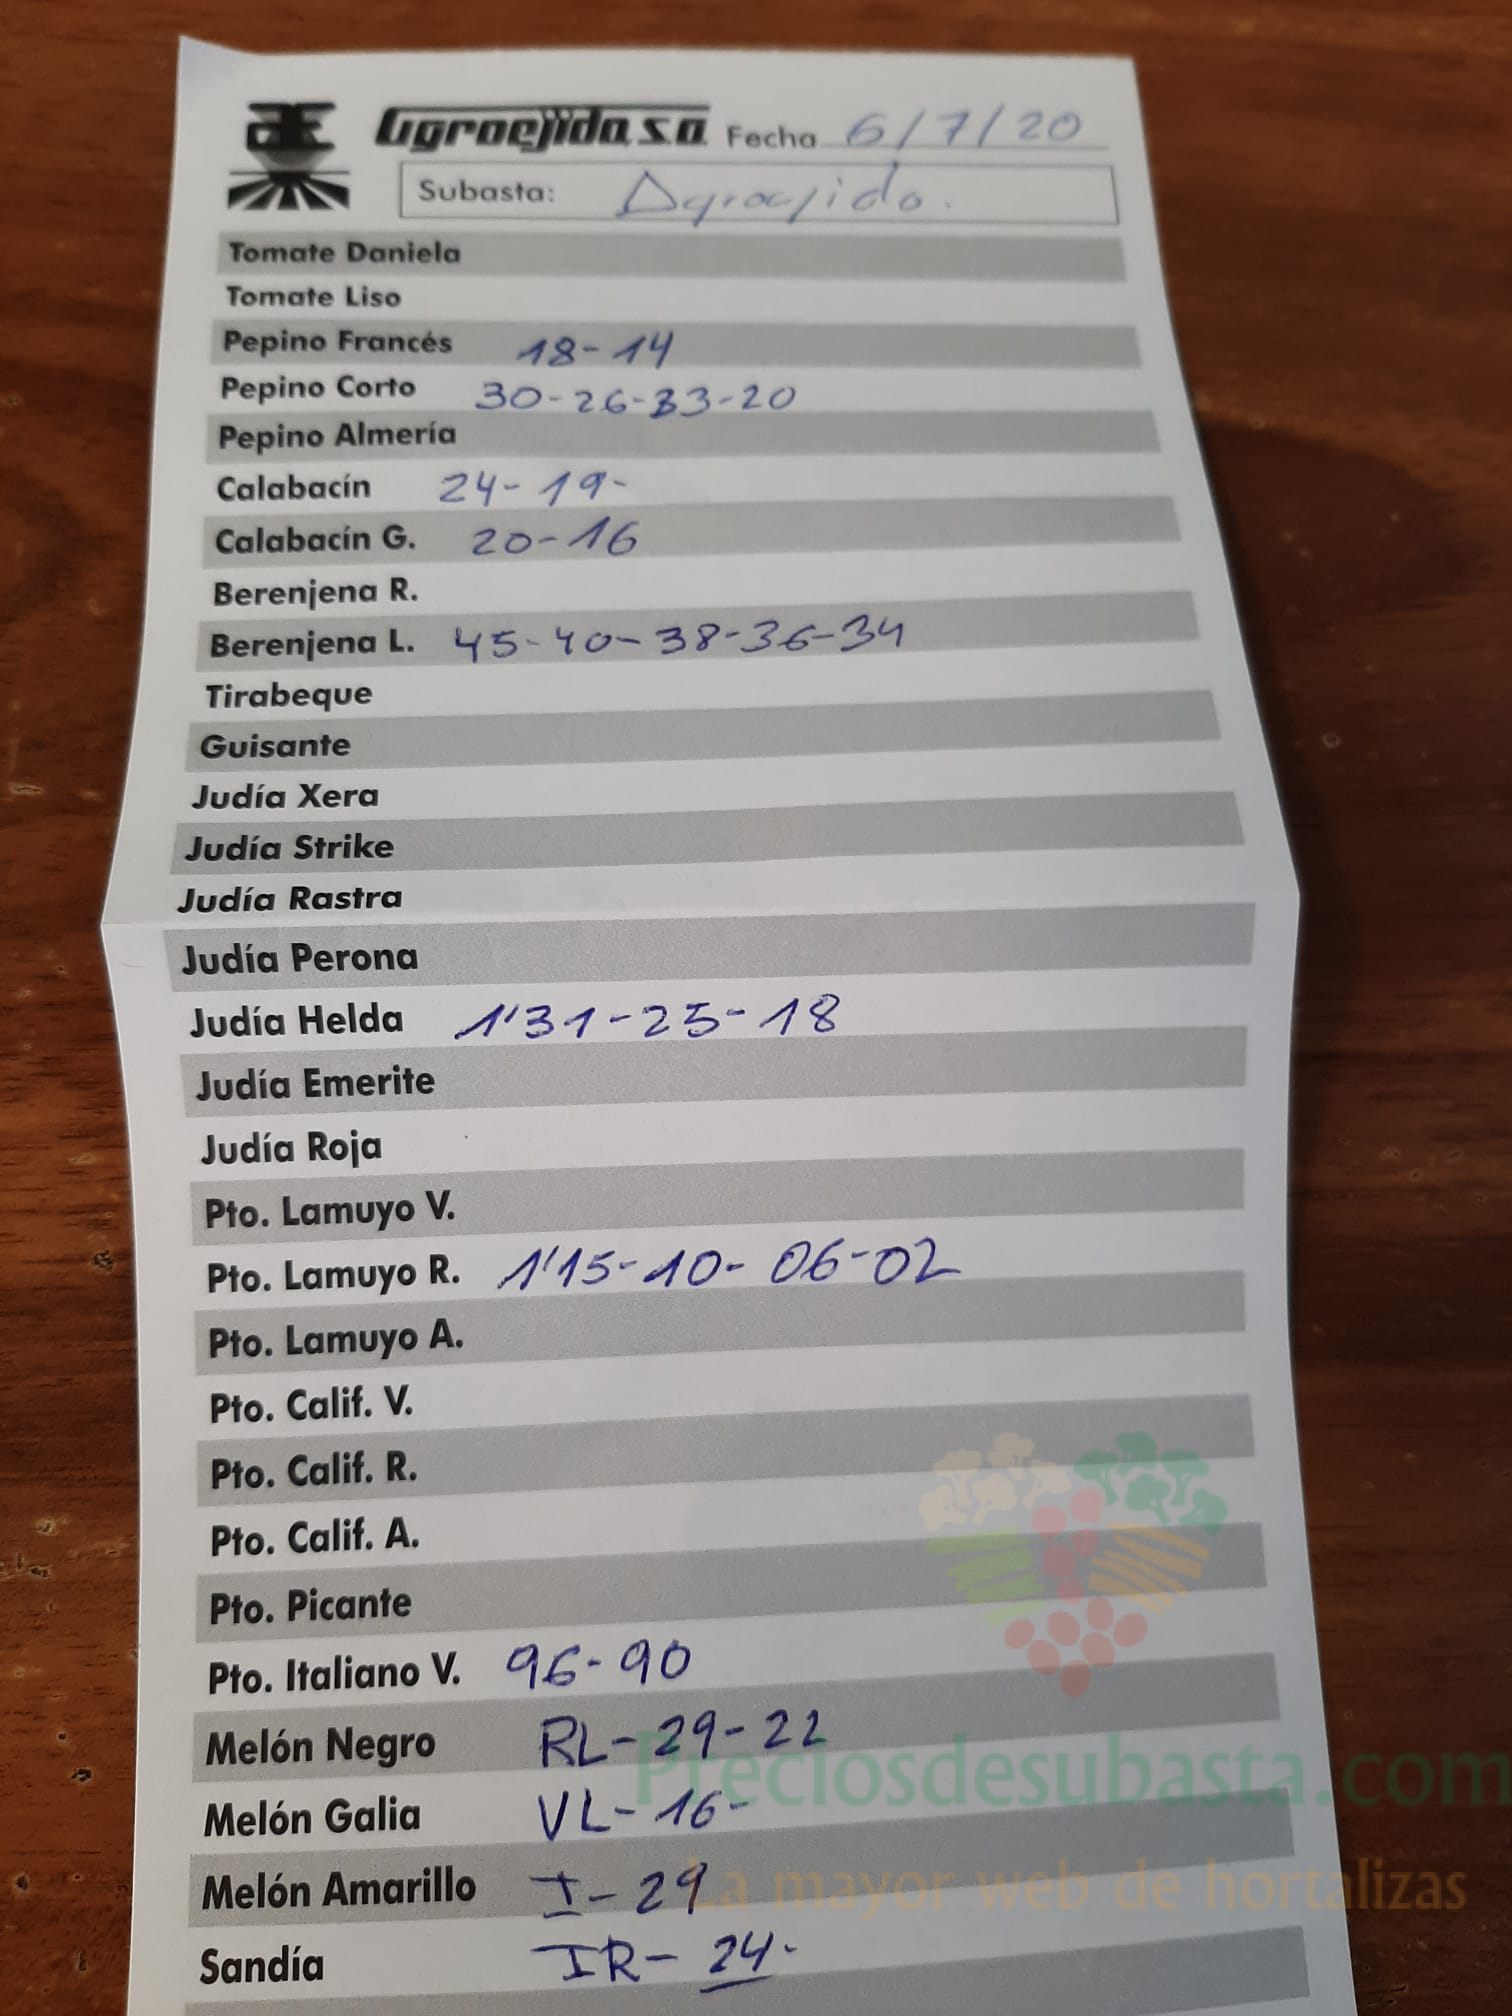 Agroejido, s.a. Fecha 6/7/20
Subasta: Agroejido.
Tomate Daniela
Tomate Liso
Pepino Francés 18-14
Pepino Corto 30-26-33-20
Pepino Almería
Calabacín 24-19-
Calabacín G. 20-16
Berenjena R.
Berenjena L. 45-40-38-36-34
Tirabeque
Guisante
Judía Xera
Judía Strike
Judía Rastra
Judía Perona
Judía Helda 1'31-25-18
Judía Emerite
Judía Roja
Pto. Lamuyo V.
Pto. Lamuyo R. 1'15-10-06-02
Pto. Lamuyo A.
Pto. Calif. V.
Pto. Calif. R.
Pto. Calif. A.
Pto. Picante
Pto. Italiano V. 96-90
Melón Negro RL-29-22
Preciosdesubasta.com
Melón Galia VL-16-
Melón Amarillo I-29
La mayor web de hortalizas
Sandía IR-24-